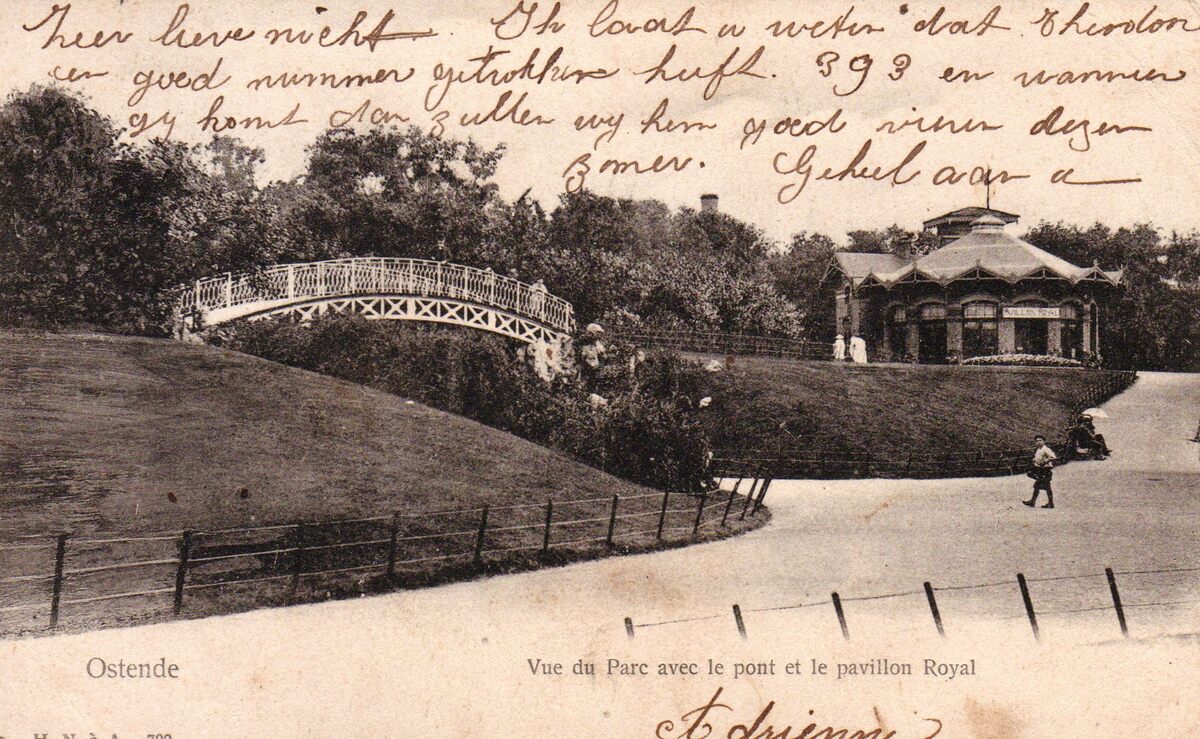 Zeer lieve nicht. Ik laat u weten dat Theodoor
een goed nummer getrokken heeft. 393 en wanneer
gy komt dan zullen wy hem goed vieren dezen
zomer. Geheel aan u
PAVILLON ROYAL
Ostende
Vue du Parc avec le pont et le pavillon Royal
Adrienne